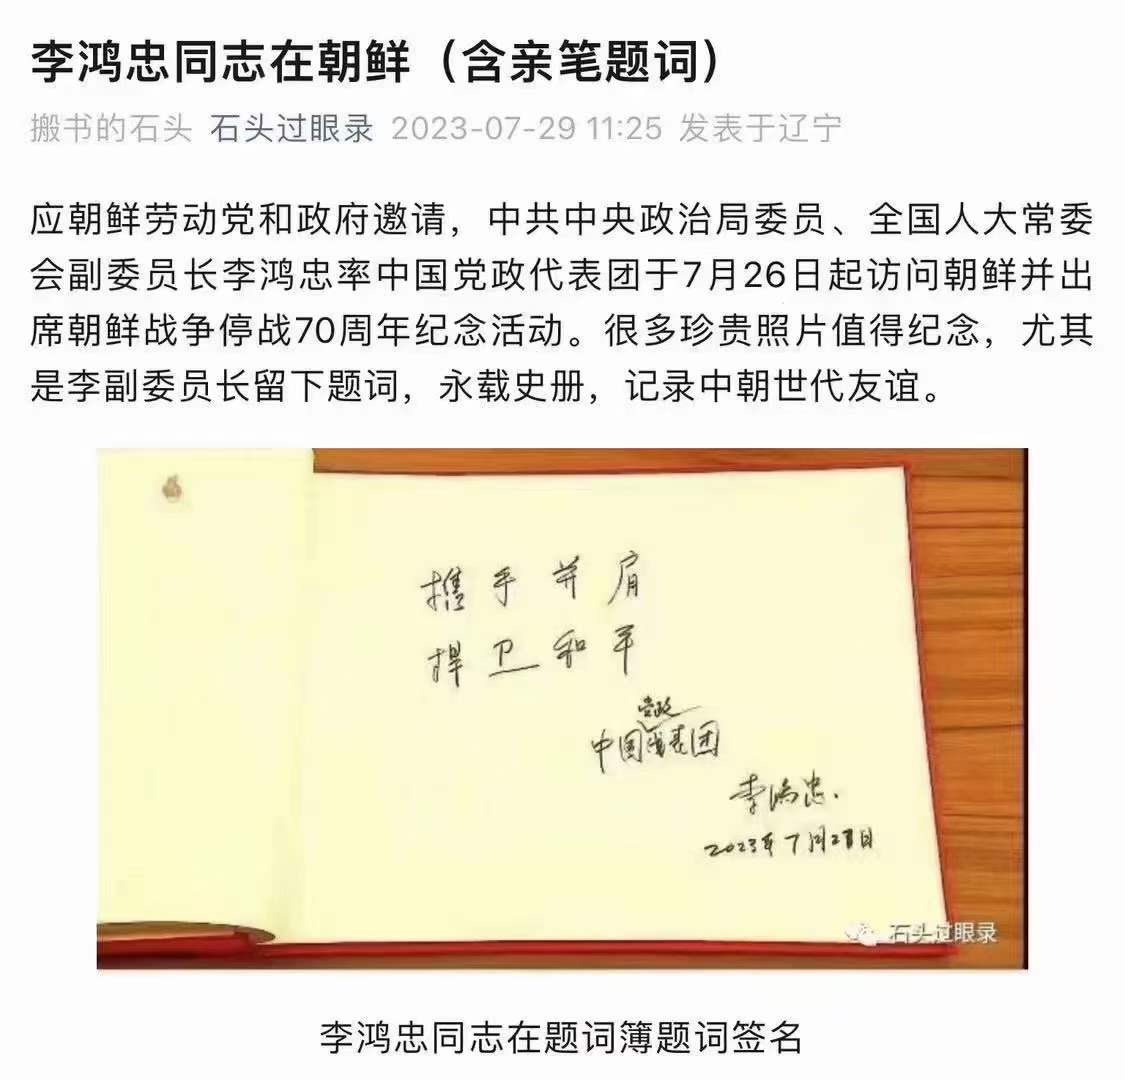 李鸿忠同志在朝鲜（含亲笔题词）
搬书的石头 石头过眼录 2023-07-29 11:25 发表于辽宁
应朝鲜劳动党和政府邀请，中共中央政治局委员、全国人大常委
会副委员长李鸿忠率中国党政代表团于7月26日起访问朝鲜并出
席朝鲜战争停战70周年纪念活动。很多珍贵照片值得纪念，尤其
是李副委员长留下题词，永载史册，记录中朝世代友谊。
携手并肩
捍卫和平
党政
中国代表团
李鸿忠.
2023年7月28日
石头过眼录
李鸿忠同志在题词簿题词签名